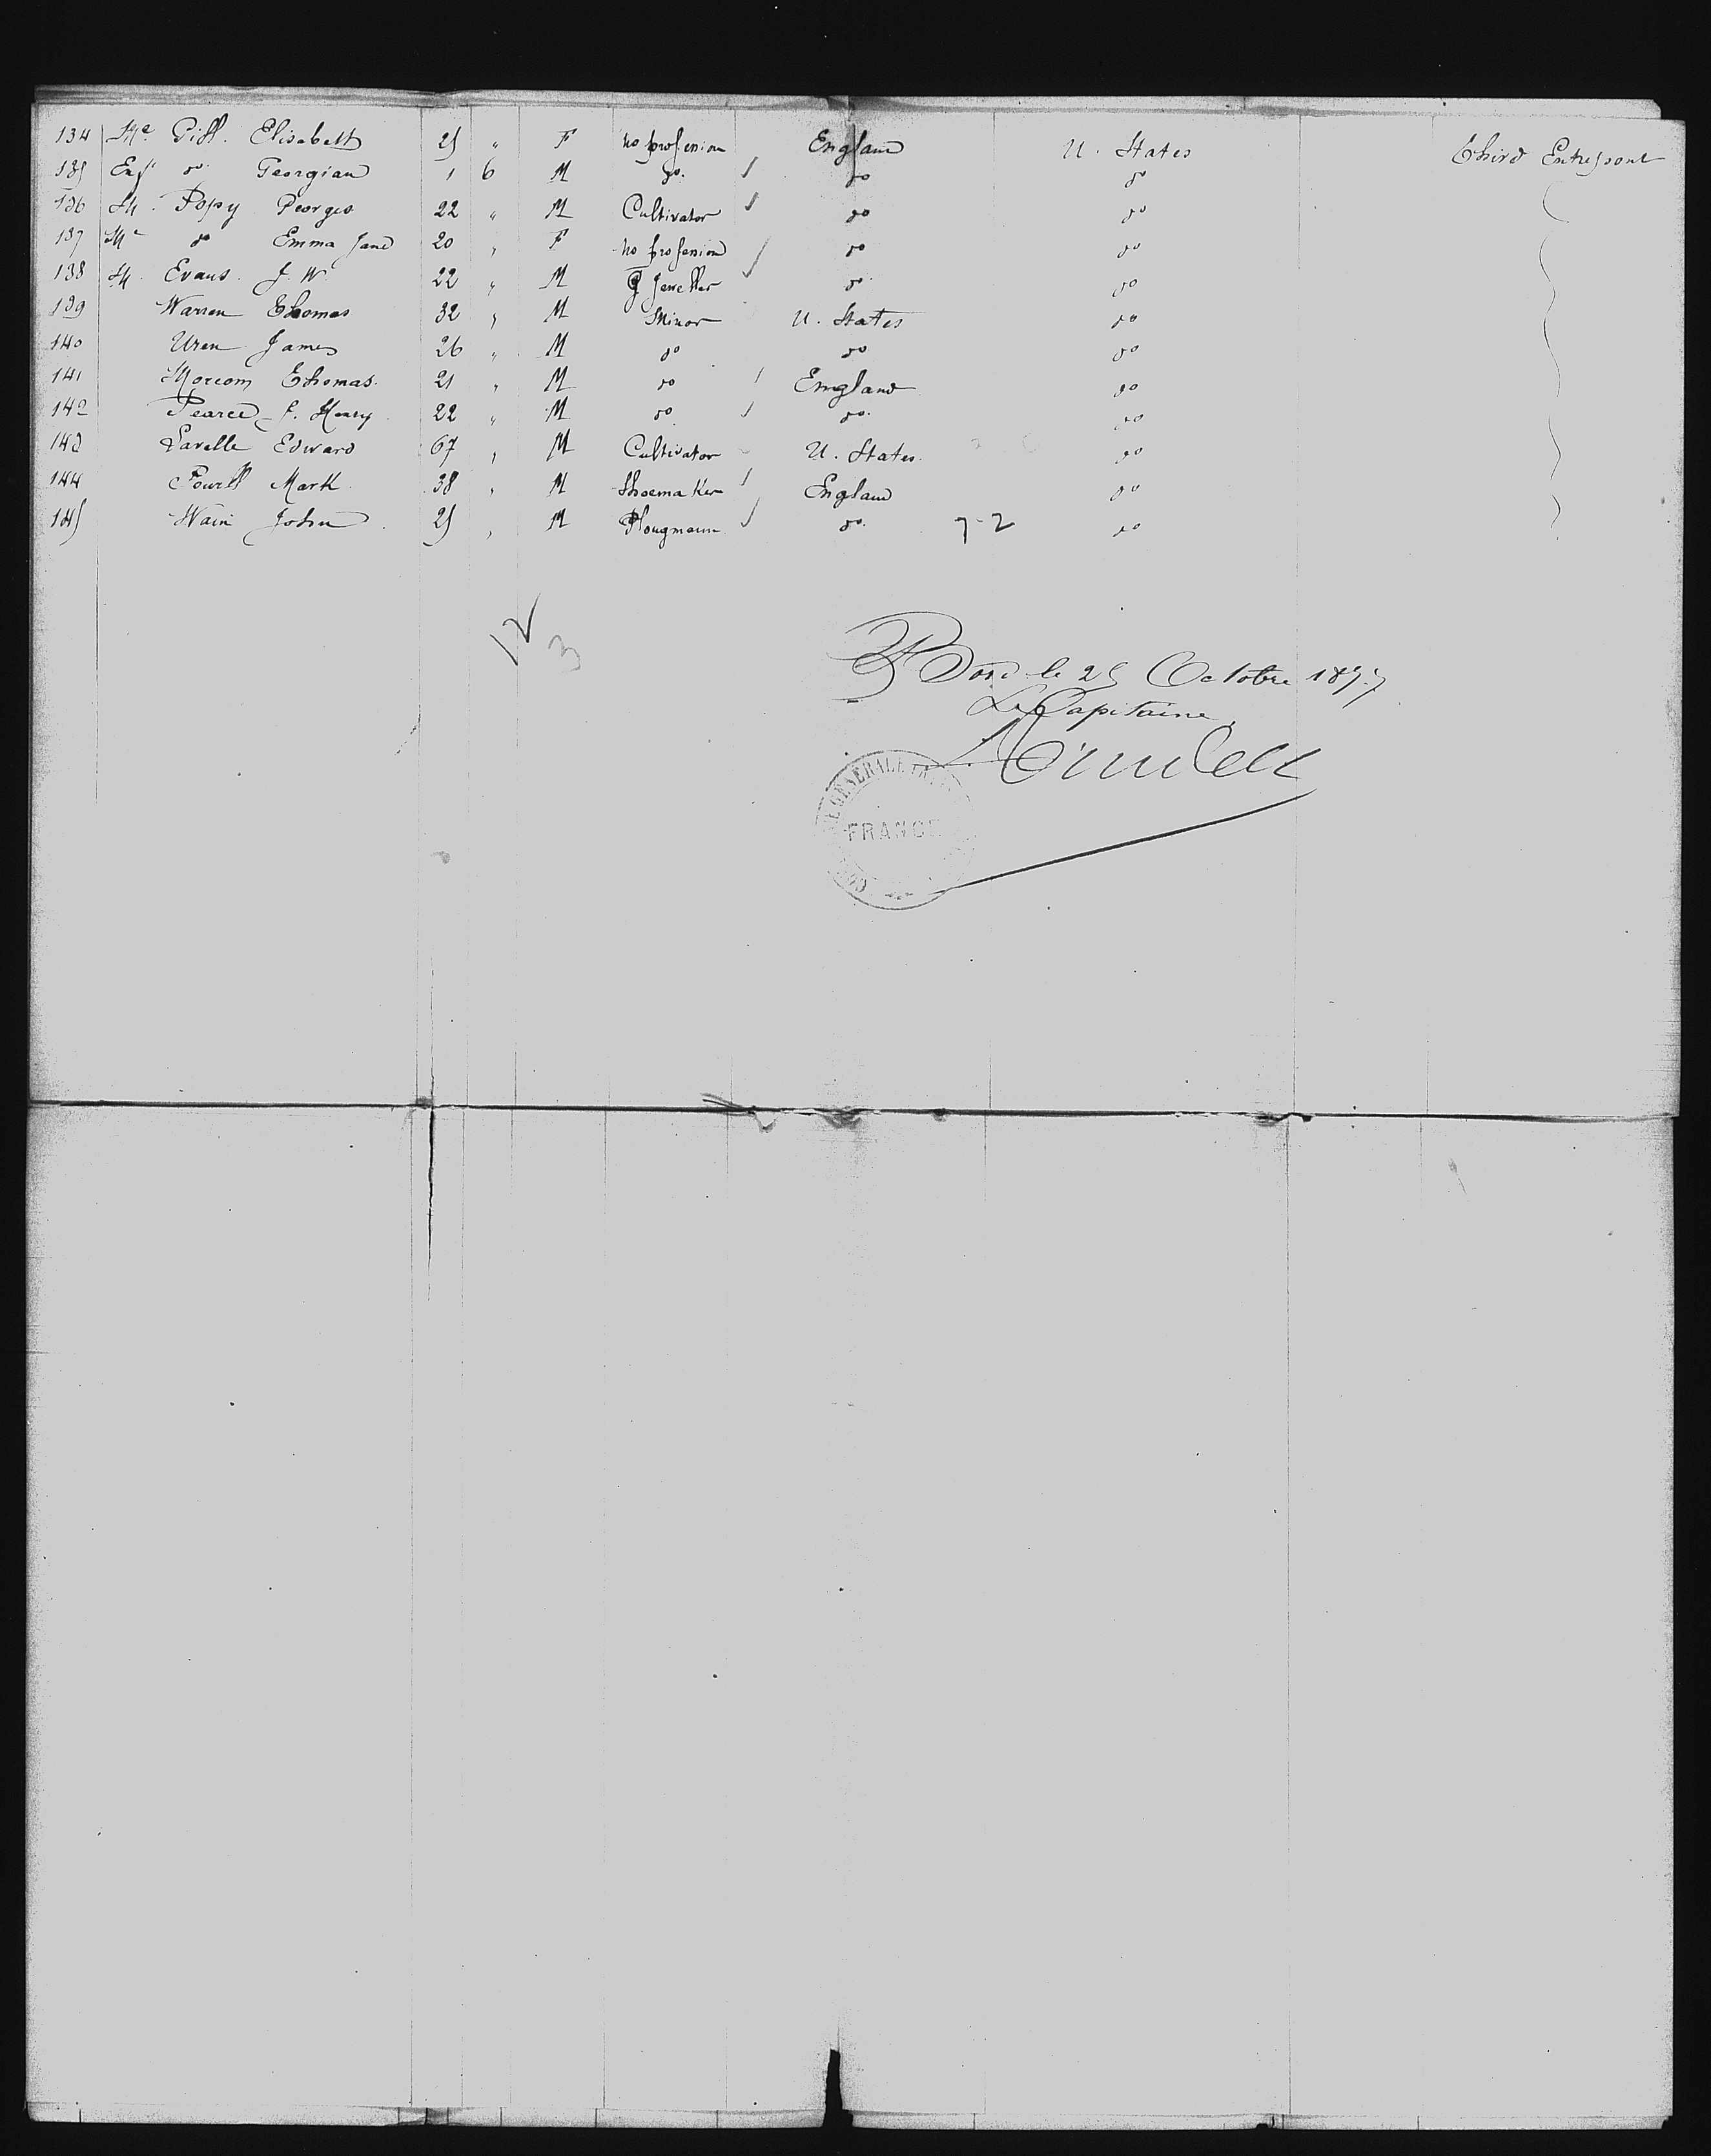 134 Me Gill. Elisabeth 25 " F no profession England U. States Third Entrepont
135 Enft do Georgian 1 6 M do. do do
136 M. Popy Georges 22 " M Cultivator do do
137 Me do Emma Jane 20 " F no profession do do
138 M. Evans. J. W. 22 " M Jeweller do. do
139 Warren Thomas 32 " M Minor U. States do
140 Uren James 26 " M do do do
141 Morcom Thomas. 21 " M do England do
142 Pearce J. Henry 22 " M do do. do
143 Lavelle Edward 67 " M Cultivator U. States. do
144 Powell Mark. 38 " M Shoemaker England do
145 Wain John 25 " M Plougmann do. 72 do
12
3
Bord le 25 Octobre 1877
Le Capitaine,
GENERALE
FRANCE